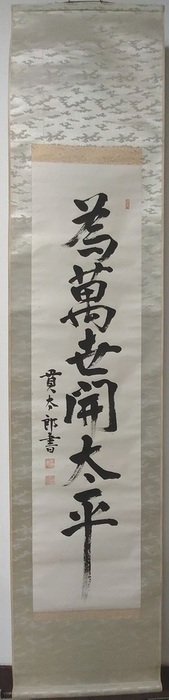 為萬世開太平
貫太郎書